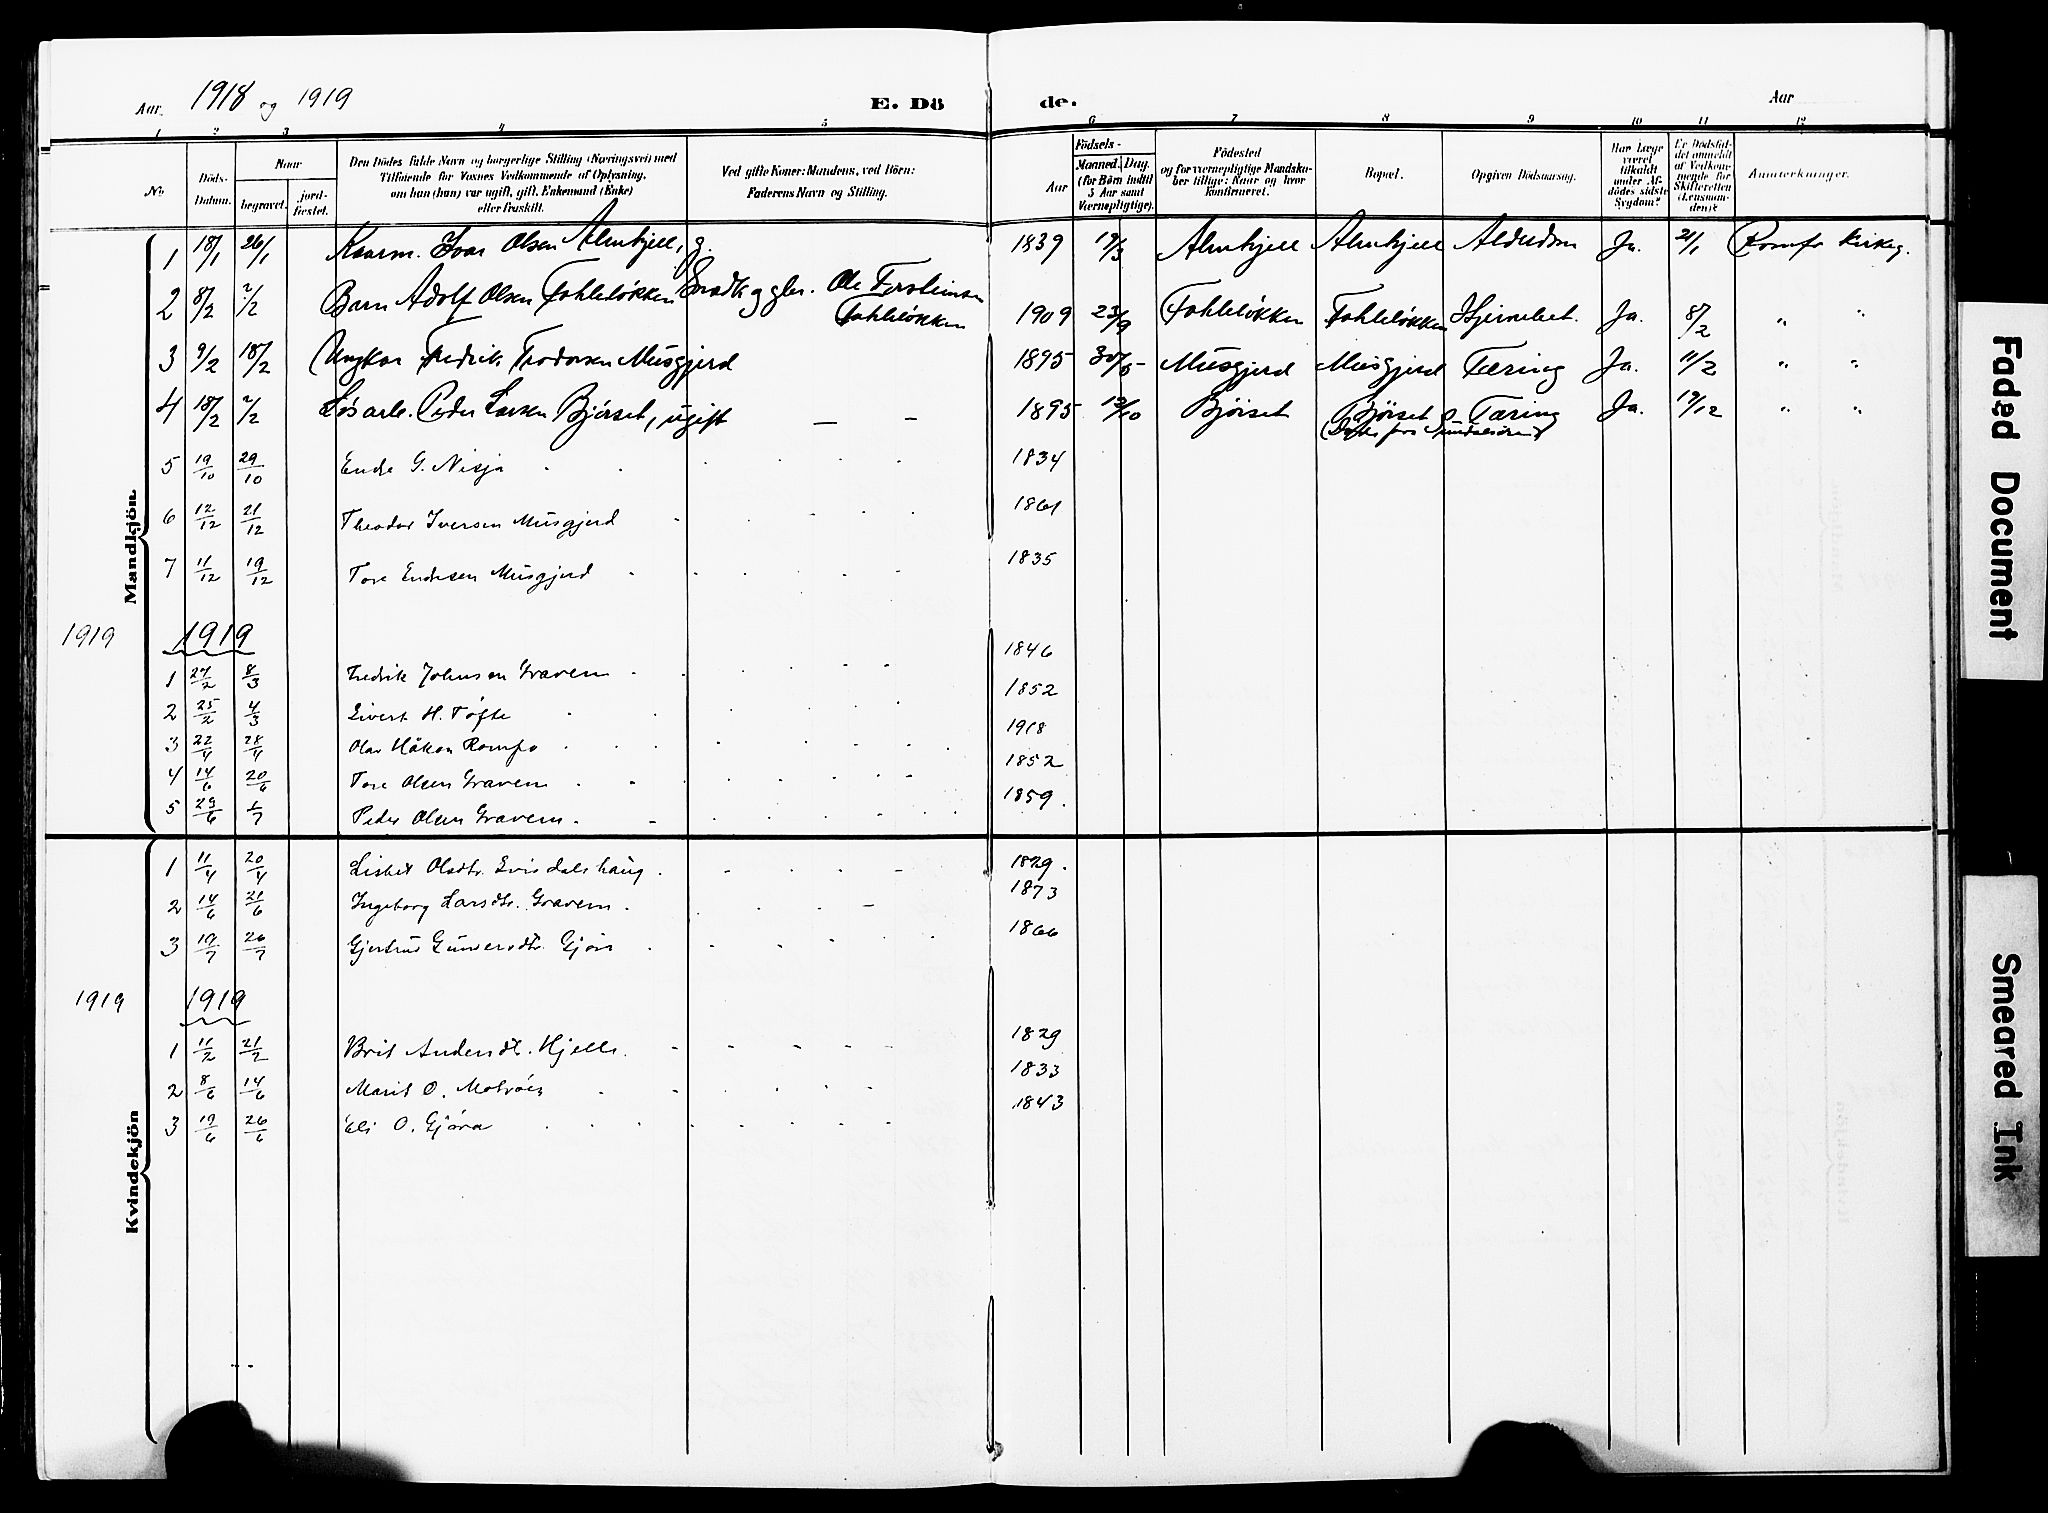 Aar 1918 og 1919 E. Dö de. Aar
1 2 3 4 5 6 7 8 9 10 11 12
No
Döds-Datum.
Naar
begravet.
jord-fæstet.
Den Dödes fulde Navn og borgerlige Stilling (Næringsvei) med
Tilföiende for Voxnes Vedkommende af Oplysning,
om han (hun) var ugift, gift, Enkemand (Enke)
eller fraskilt.
Ved gifte Koner: Mandens, ved Börn:
Faderens Navn og Stilling.
Födsels-
Aar
Maaned. Dag.
(for Börn indtil
5 Aar samt
Værnepligtige).
Födested
og for værnepligtige Mandska-
ber tillige: Naar og hvor
konfirmeret.
Bopæl.
Opgiven Dödsaarsag.
Har Læge
været
tilkaldt
under Af-
dödes sidste
Sygdom?
Er Dödsfal-
det anmeldt
af Vedkom-
mende for
Skifteretten
(Lensman-
den)?
Anmærkninger.
Mandkjön
1 18/1 26/1 Kaarm. Ivar Olsen Almskjell, g. 1839 Almskjell Almskjell Ja. 21/1 Romfo kirkeg.
2 8/2 Barn Adolf Olsen Fahleløkken Ole Torsteinsen
Fahleløkken 1909 23/9 Fahleløkken Fahleløkken Hjernebet. Ja. 8/2 " "
3 9/2 18/2 Ungkar Fredrik Teodorsen Musgjerd 1895 30/5 Musgjerd Musgjerd Tæring Ja. 11/2 " "
4 18/2 Løsarb. Peder Larsen Bjørset, ugift — — 1895 Bjørset Bjørset Tæring Ja. 19/12 " "
5 19/10 29/10 Endre G. Nisja 1834
6 12/12 21/12 Theodor Iversen Musgjerd 1861
7 11/12 19/12 Tore Endresen Musgjerd 1835
1919 1919
1 27/2 8/3 Fredrik Johnsen Gravem 1846
2 25/2 4/3 Sivert H. Tøfte 1852
3 22/4 28/4 Olav Håkon Romfo 1918
4 14/6 20/6 Tore Olsen Gravem 1852
5 29/6 Peder Olsen Gravem 1859.
Kvindekjön
1 11/4 20/4 Lisbet Olsdtr. 1829.
2 14/6 21/6 Ingeborg Larsdtr. Gravem 1873
3 19/7 26/7 Gjertrud Gundersdtr. Gjöra 1866
1919 1919
1 11/2 21/2 Brit Andersdtr. Hjelle 1829
2 8/6 14/6 Marit O. 1833
3 19/6 26/6 Eli O. Gjöra 1843
Faded Document
Smeared Ink